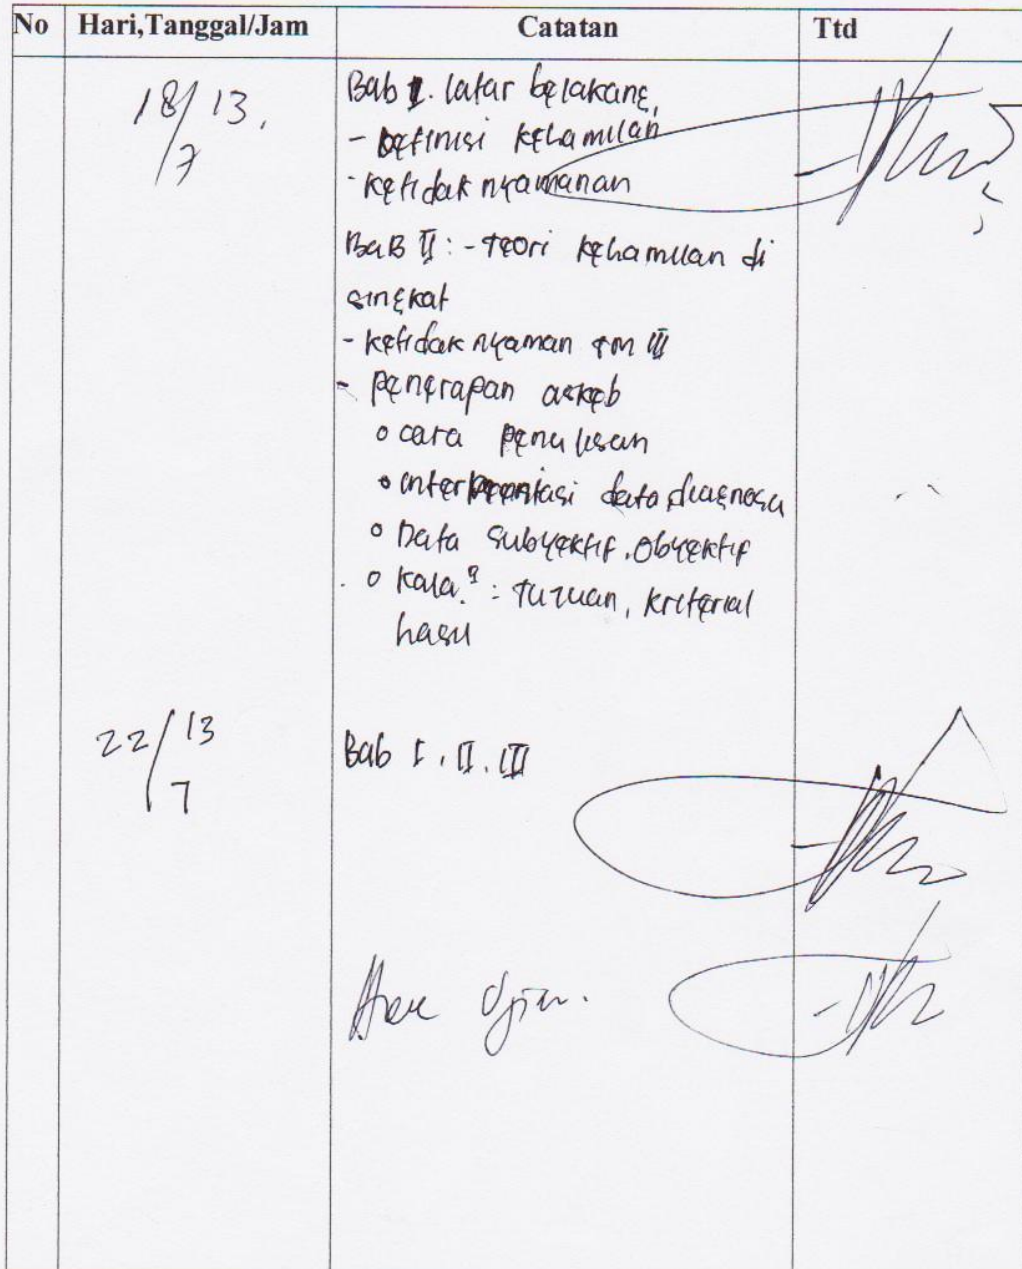 No Hari,Tanggal/Jam Catatan Ttd
18/7 13. Bab I. latar belakang
- Definisi kehamilan
- ketidak nyamanan
BaB II : - teori kehamilan di
singkat
- ketidak nyaman tm III
- penerapan askeb
o cara penulisan
o interpretasi data, diagnosa
o Data subyektif, obyektif
o kala? : tujuan, kriterial
hasil
22/7 13 Bab I, II, III
Ujian.